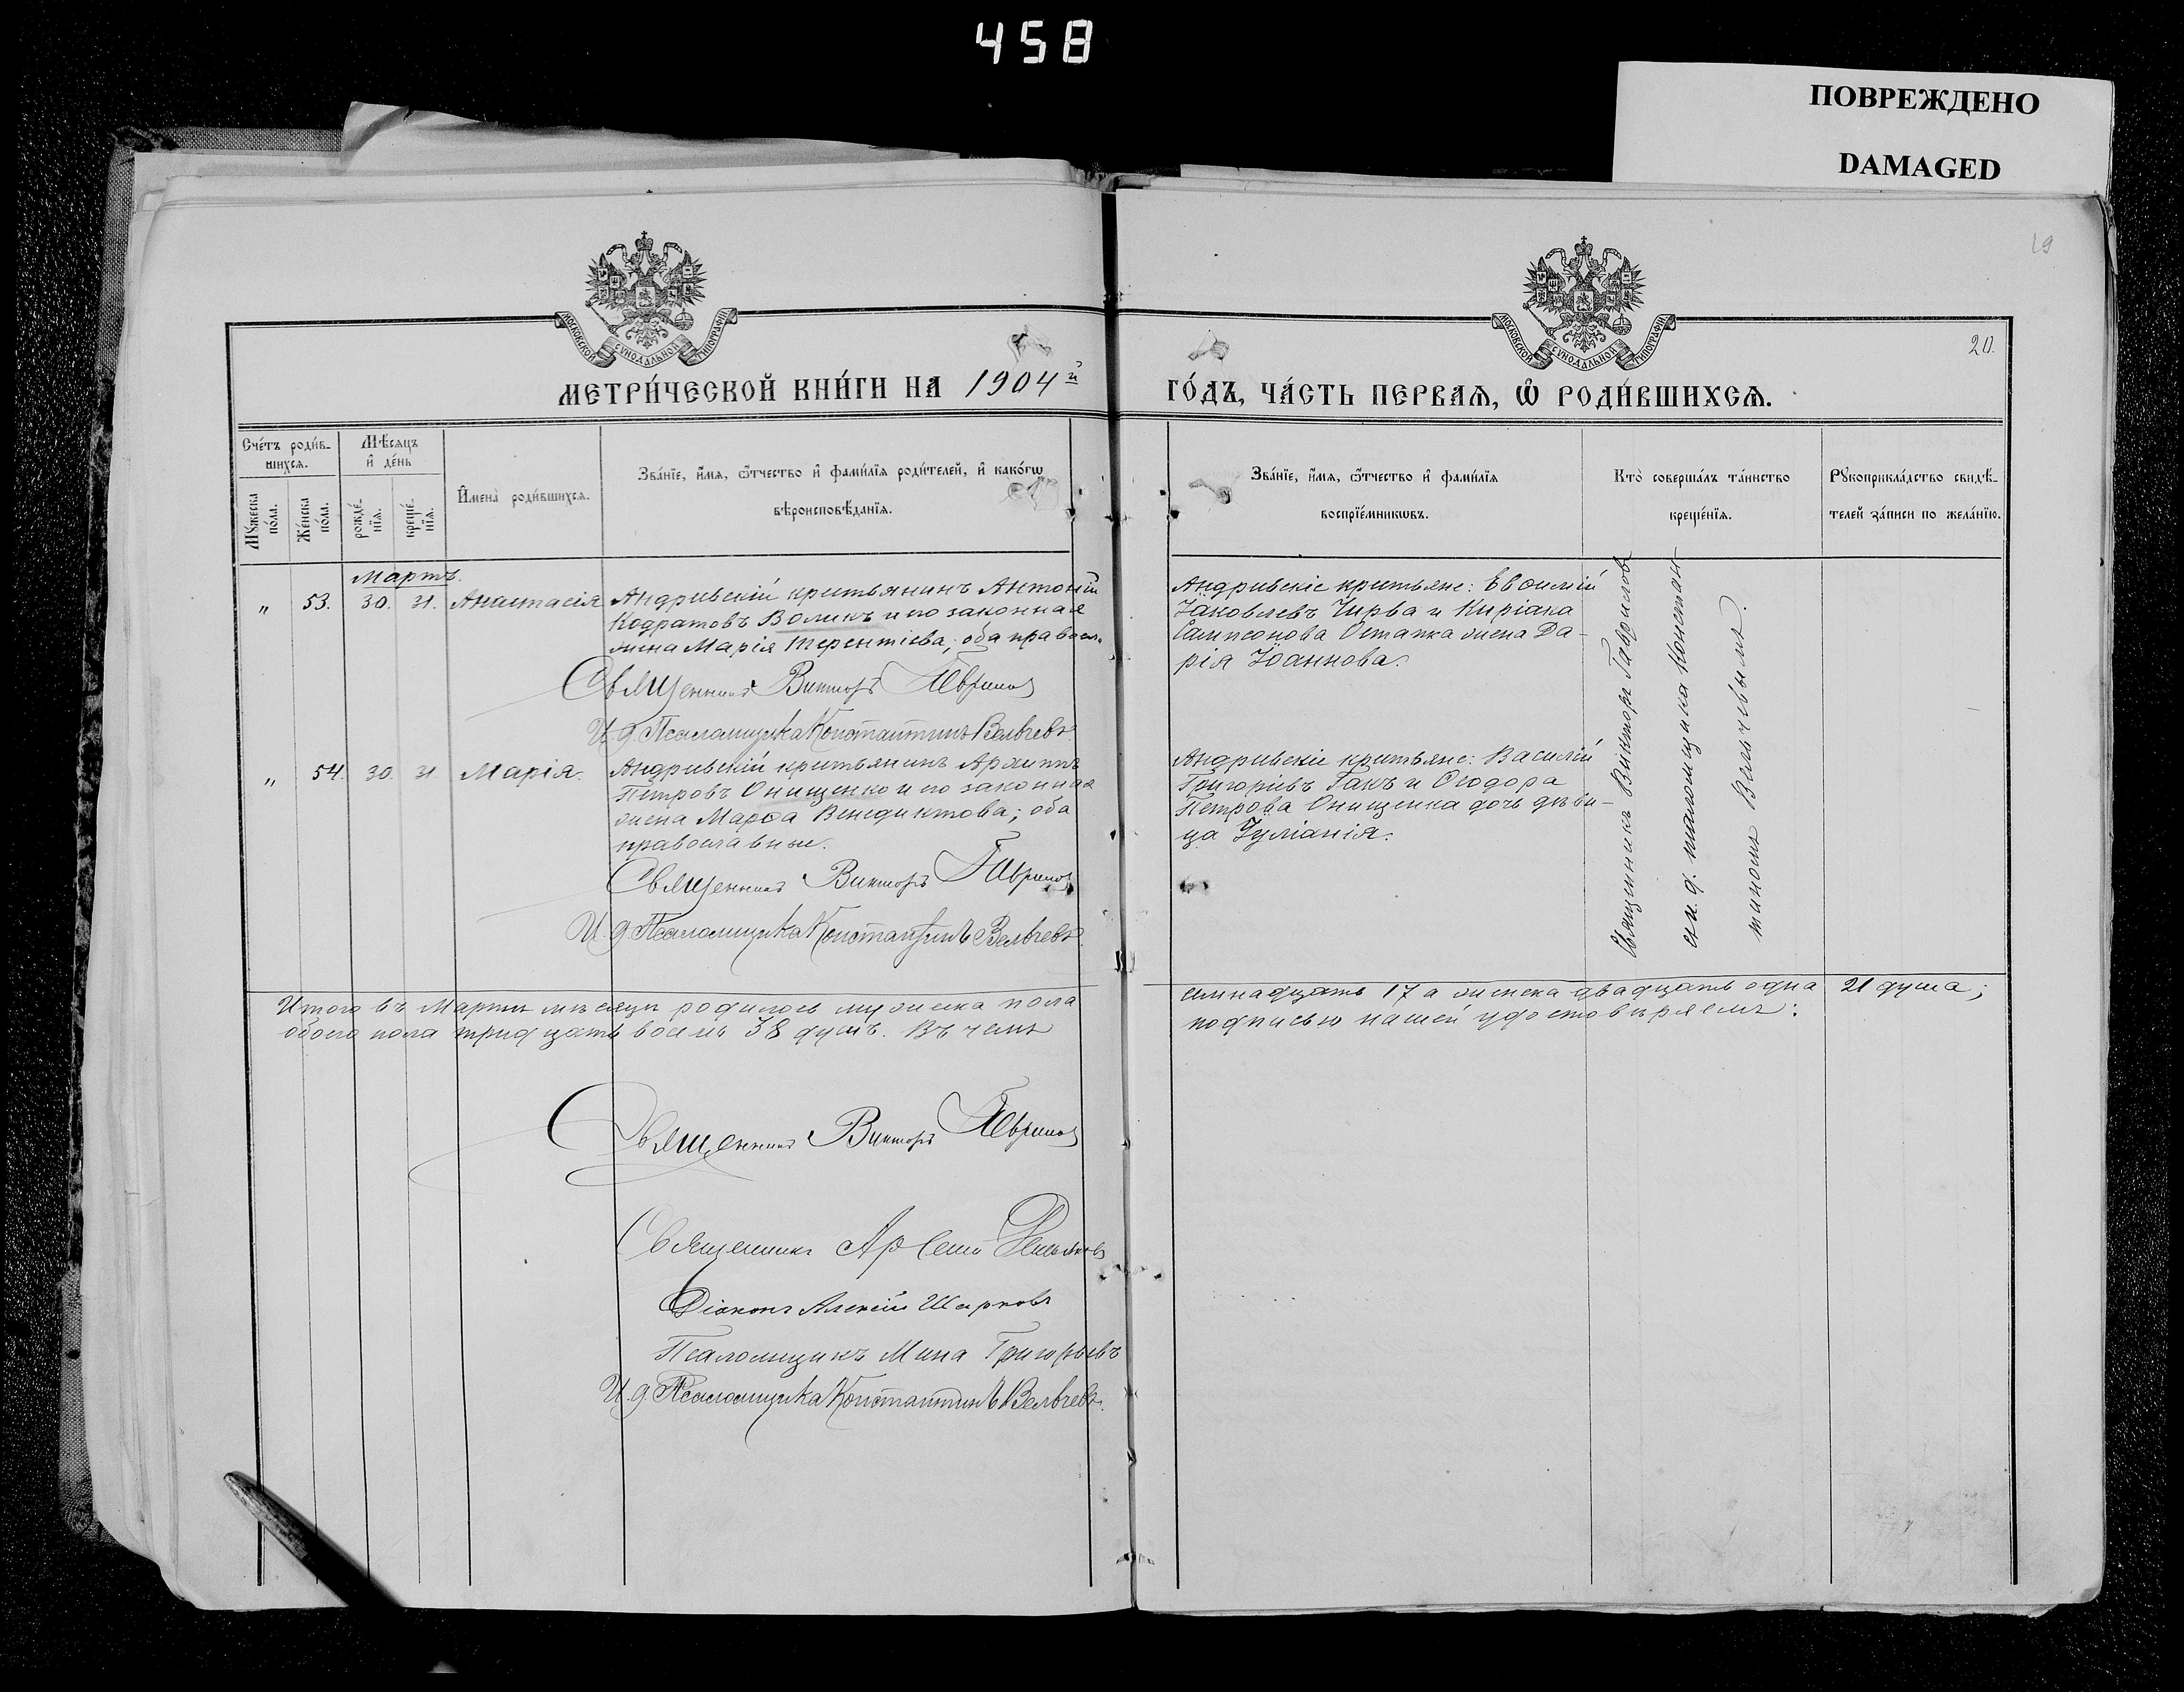 458
ПОВРЕЖДЕНО
DAMAGED
19
20.
МОСКОВСКОЙ СѴНОДАЛЬНОЙ ТИПОГРАФІИ
МОСКОВСКОЙ СѴНОДАЛЬНОЙ ТИПОГРАФІИ
МЕТРИ́ЧЕСКОЙ КНИ́ГИ НА 1904й ГО́ДЪ, ЧА́СТЬ ПЕРВАѦ, Ѡ҆ РОДИ́ВШИХСѦ.
Сче́тъ роди́в-
шихсѧ.
Мꙋжеска по́ла.
Же́нска по́ла.
Мѣ́сѧцъ
и҆ де́нь
рожде́-
нїѧ.
креще́-
нїѧ.
И҆мена̀ роди́вшихсѧ.
Зва́нїе, и҆́мѧ, ѻ҆́тчество и҆ фами́лїѧ роди́телей, и҆ како́гѡ
вѣроисповѣ́данїѧ.
Зва́нїе, и҆́мѧ, ѻ҆́тчество и҆ фами́лїѧ
воспрїе́мникѡвъ.
Кто̀ соверша́лъ та́инство
креще́нїѧ.
Рꙋкоприкла́дство свидѣ́-
телей за́писи по жела́нїю.
Мартъ.
„ 53. 30. 31. Анастасія
Андріевскій крестьянинъ Антоній
Кодратовъ Воликъ и его законная
жена Марія Терентіева; оба правосл.
Священникъ Викторъ Гавриловъ
И. д. Псаломщика Константинъ Вельчевъ.
Андріевскіе крестьяне: Евѳимій
Іаковлевъ Чирва и Киріака
Сампсонова Остапка жена Да-
рія Іоаннова.
„ 54. 30. 31. Марія.
Андріевскій крестьянинъ Архиппъ
Петровъ Онищенко и его законная
жена Марѳа Венедиктова; оба
православные.
Священникъ Викторъ Гавриловъ
И. д. Псаломщика Константинъ Вельчевъ.
Андріевскіе крестьяне: Василій
Григоріевъ Гакъ и Ѳеодора
Петрова Онищенка дочь дѣви-
ца Іуліанія.
Священникъ Викторъ Гавриловъ
съ и. д. псаломщика Констан-
тиномъ Вельчевымъ.
Итого въ Мартѣ мѣсяцѣ родилось мужеска пола семнадцать 17 а женска двадцать одна 21 душа;
обоего пола тридцать восемь 38 душъ. Въ чемъ подписью нашей удостовѣряемъ:
Священникъ Викторъ Гавриловъ
Священникъ Арсеній
Діаконъ Алексій Шарковъ
Псаломщикъ Мина Григорьевъ
И. д. Псаломщика Константинъ Вельчевъ.